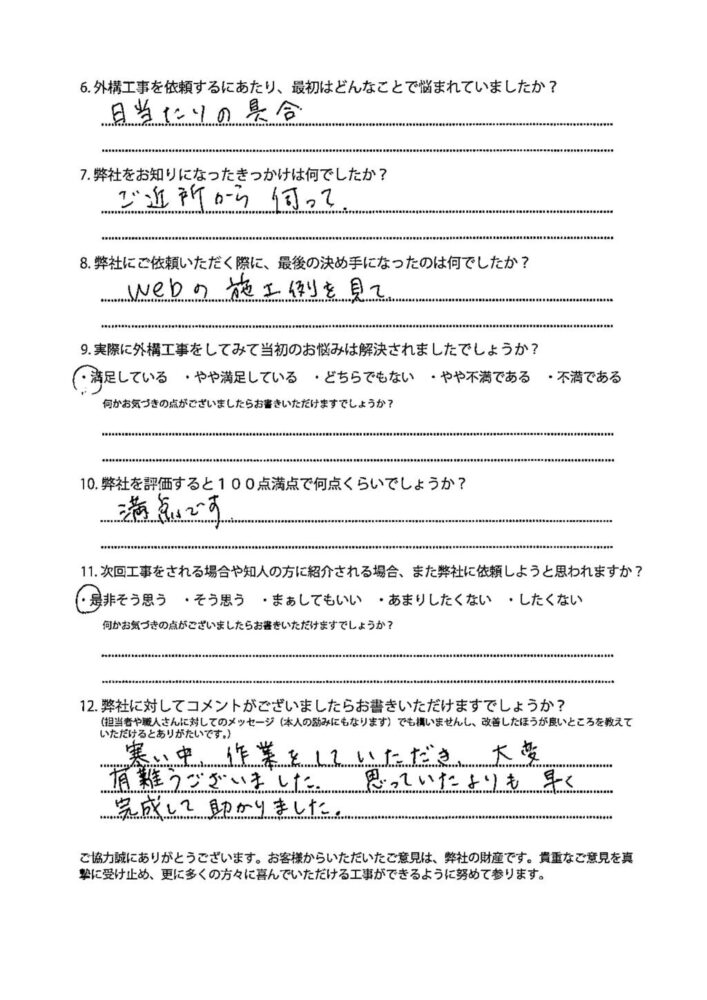 6. 外構工事を依頼するにあたり、最初はどんなことで悩まれていましたか？
日当たりの具合
7. 弊社をお知りになったきっかけは何でしたか？
ご近所から伺って.
8. 弊社にご依頼いただく際に、最後の決め手になったのは何でしたか？
webの施工例を見て.
9. 実際に外構工事をしてみて当初のお悩みは解決されましたでしょうか？
・満足している ・やや満足している ・どちらでもない ・やや不満である ・不満である
何かお気づきの点がございましたらお書きいただけますでしょうか？
10. 弊社を評価すると１００点満点で何点くらいでしょうか？
満点です.
11. 次回工事をされる場合や知人の方に紹介される場合、また弊社に依頼しようと思われますか？
・是非そう思う ・そう思う ・まぁしてもいい ・あまりしたくない ・したくない
何かお気づきの点がございましたらお書きいただけますでしょうか？
12. 弊社に対してコメントがございましたらお書きいただけますでしょうか？
（担当者や職人さんに対してのメッセージ（本人の励みにもなります）でも構いませんし、改善したほうが良いところを教えて
いただけるとありがたいです。）
寒い中、作業をしていただき、大変
有難うございました. 思っていたよりも早く
完成して助かりました。
ご協力誠にありがとうございます。お客様からいただいたご意見は、弊社の財産です。貴重なご意見を真
摯に受け止め、更に多くの方々に喜んでいただける工事ができるように努めて参ります。